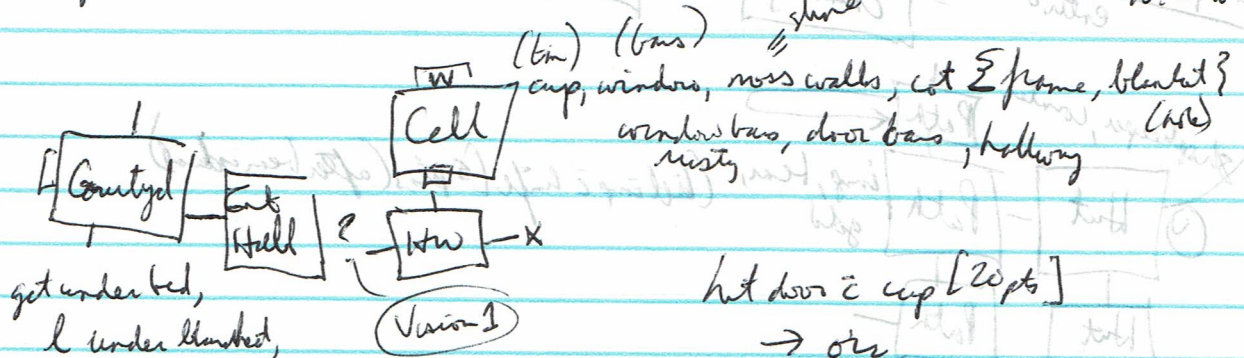 (tin) (bars)
cup, window, moss walls, cot {frame, blanket}
W
Cell
window bars, door bars, hallway
rusty
Courtyd
Ent
Hall
?
HW
X
get under bed,
l under blanket,
Vision 1
hit door c̄ cup [20 pts]
→